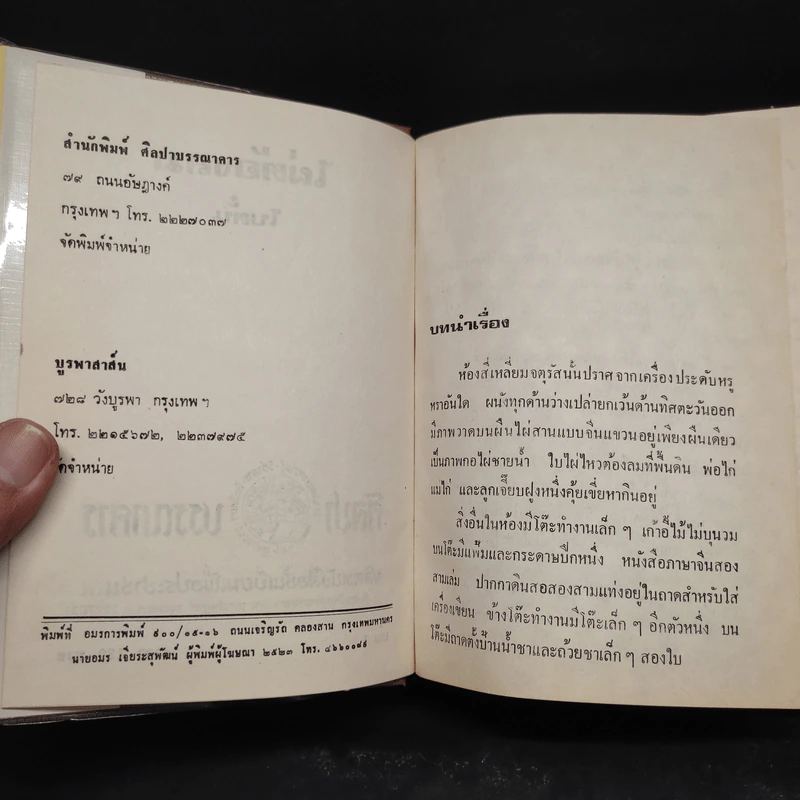 สำนักพิมพ์ ศิลปาบรรณาคาร
๗๙ ถนนอัษฎางค์
กรุงเทพฯ โทร. ๒๒๒๗๐๓๗
จัดพิมพ์จำหน่าย
บูรพาสาส์น
๗๒๘ วังบูรพา กรุงเทพฯ
โทร. ๒๒๑๕๖๗๒, ๒๒๓๗๙๗๕
จัดจำหน่าย
พิมพ์ที่ อมรการพิมพ์ ๙๐๐/๑๕-๑๖ ถนนเจริญรัถ คลองสาน กรุงเทพมหานคร
นายอมร เจียระสุพัฒน์ ผู้พิมพ์ผู้โฆษณา ๒๕๒๓ โทร.
บทนำเรื่อง
ห้องสี่เหลี่ยมจตุรัสนั้นปราศจากเครื่องประดับหรู
หราอันใด ผนังทุกด้านว่างเปล่ายกเว้นด้านทิศตะวันออก
มีภาพวาดบนผืนไผ่สานแบบจีนแขวนอยู่เพียงผืนเดียว
เป็นภาพกอไผ่ชายน้ำ ใบไผ่ไหวต้องลมที่พื้นดิน พ่อไก่
แม่ไก่ และลูกเจี๊ยบฝูงหนึ่งคุ้ยเขี่ยหากินอยู่
สิ่งอื่นในห้องมีโต๊ะทำงานเล็ก ๆ เก้าอี้ไม้ไม่บุนวม
บนโต๊ะมีแฟ้มและกระดาษปึกหนึ่ง หนังสือภาษาจีนสอง
สามเล่ม ปากกาดินสอสองสามแท่งอยู่ในถาดสำหรับใส่
เครื่องเขียน ข้างโต๊ะทำงานมีโต๊ะเล็ก ๆ อีกตัวหนึ่ง บน
โต๊ะมีถาดตั้งป้านน้ำชาและถ้วยชาเล็ก ๆ สองใบ